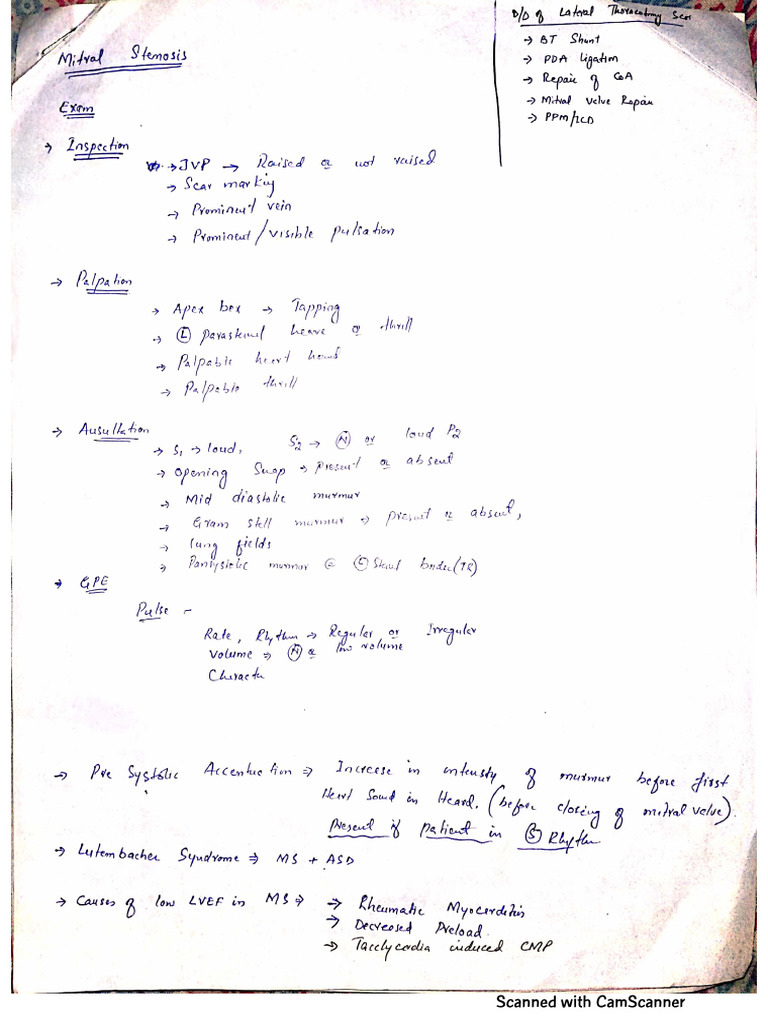 D/D of Lateral Thoracotomy Scar
→ BT Shunt
→ PDA Ligation
→ Repair of CoA
→ Mitral Valve Repair
→ PPM/ICD
Mitral Stenosis
Exam
→ Inspection
→ JVP → Raised or not raised
→ Scar marking
→ Prominent vein
→ Prominent/visible pulsation
→ Palpation
→ Apex bex → Tapping
→ Ⓛ parasternal heave or thrill
→ Palpable heart
→ Palpable thrill
→ Ausultation
→ S1 → loud, S2 → Ⓝ or loud P2
→ Opening Snap → present or absent
→ Mid diastolic murmur
→ Gram stell murmur → present or absent,
→ lung fields
→ Pansystolic murmur @ Ⓛ Sternal border (TR)
→ GPE
Pulse -
Rate, Rhythm → Regular or Irregular
Volume ⇒ Ⓝ or low volume
Character
→ Pre Systolic Accentuction ⇒ Increase in intensity of murmur before first
Heart Sound in Heard. (before closing of mitral valve).
Present if patient in Ⓢ Rhythm
→ Lutembacher Syndrome ⇒ MS + ASD
→ Causes of low LVEF in MS ⇒ → Rheumatic Myocarditis
→ Decreased Preload.
→ Tacclycardia induced CMP
Scanned with CamScanner